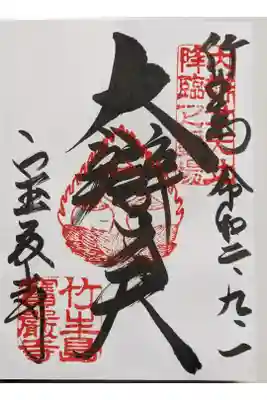 竹生島 令和二、九、一
大辯天
宝厳寺
降臨
竹生島
寶嚴寺